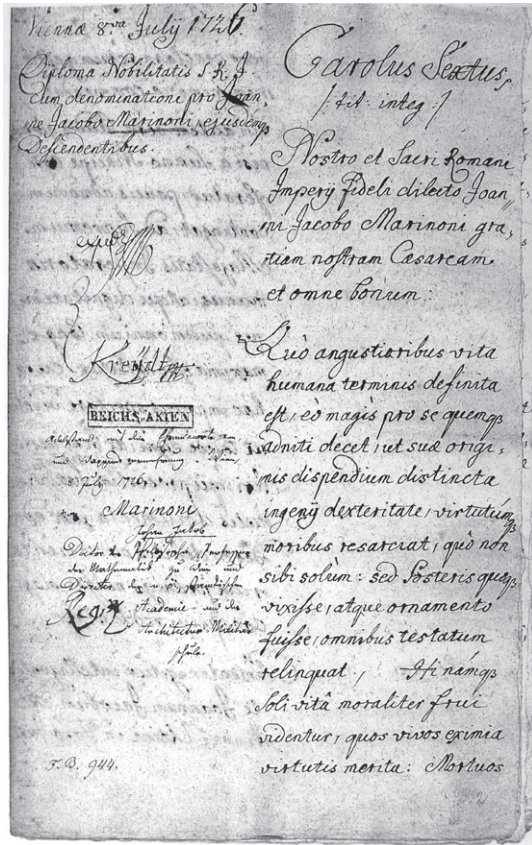 Viennæ 8.va Julij 1726.
Diploma Nobilitatis S. R. J.
cum denominatione pro Joan,
ne Jacobo Marinoni, ejusdemqȝ
Descendentibus.
exped.
Kreÿdl
REICHS-AKTEN
Adelstand mit
July 1726
Marinoni
Johan Jacob
Doctor der Philosophie, Professor
der Mathematik zu Wien und
Director der n. ö. ständischen
Academie und der
Architectur-Militär
schule.
Reg.
F. B. 944.
Carolus Sextus,
/: tit: integ :/
Nostro et Sacri Romani
Imperij fideli dilecto Joan,,
ni Jacobo Marinoni gra,
tiam nostram Cæsaream
et omne bonum:
Quò angustioribus vita
humana terminis definita
est, eò magis pro se quemqȝ
adniti decet, ut suæ origi,
nis dispendium distincta
ingenij dexteritate, virtutumqȝ
moribus resarciat, quò non
sibi solùm: sed Posteris quoqȝ
vixisse, atque ornamento
fuisse, omnibus testatum
relinquat, Hi námqȝ
soli vitâ moraliter frui
videntur, quos vivos eximia
virtutis merita: Mortuos